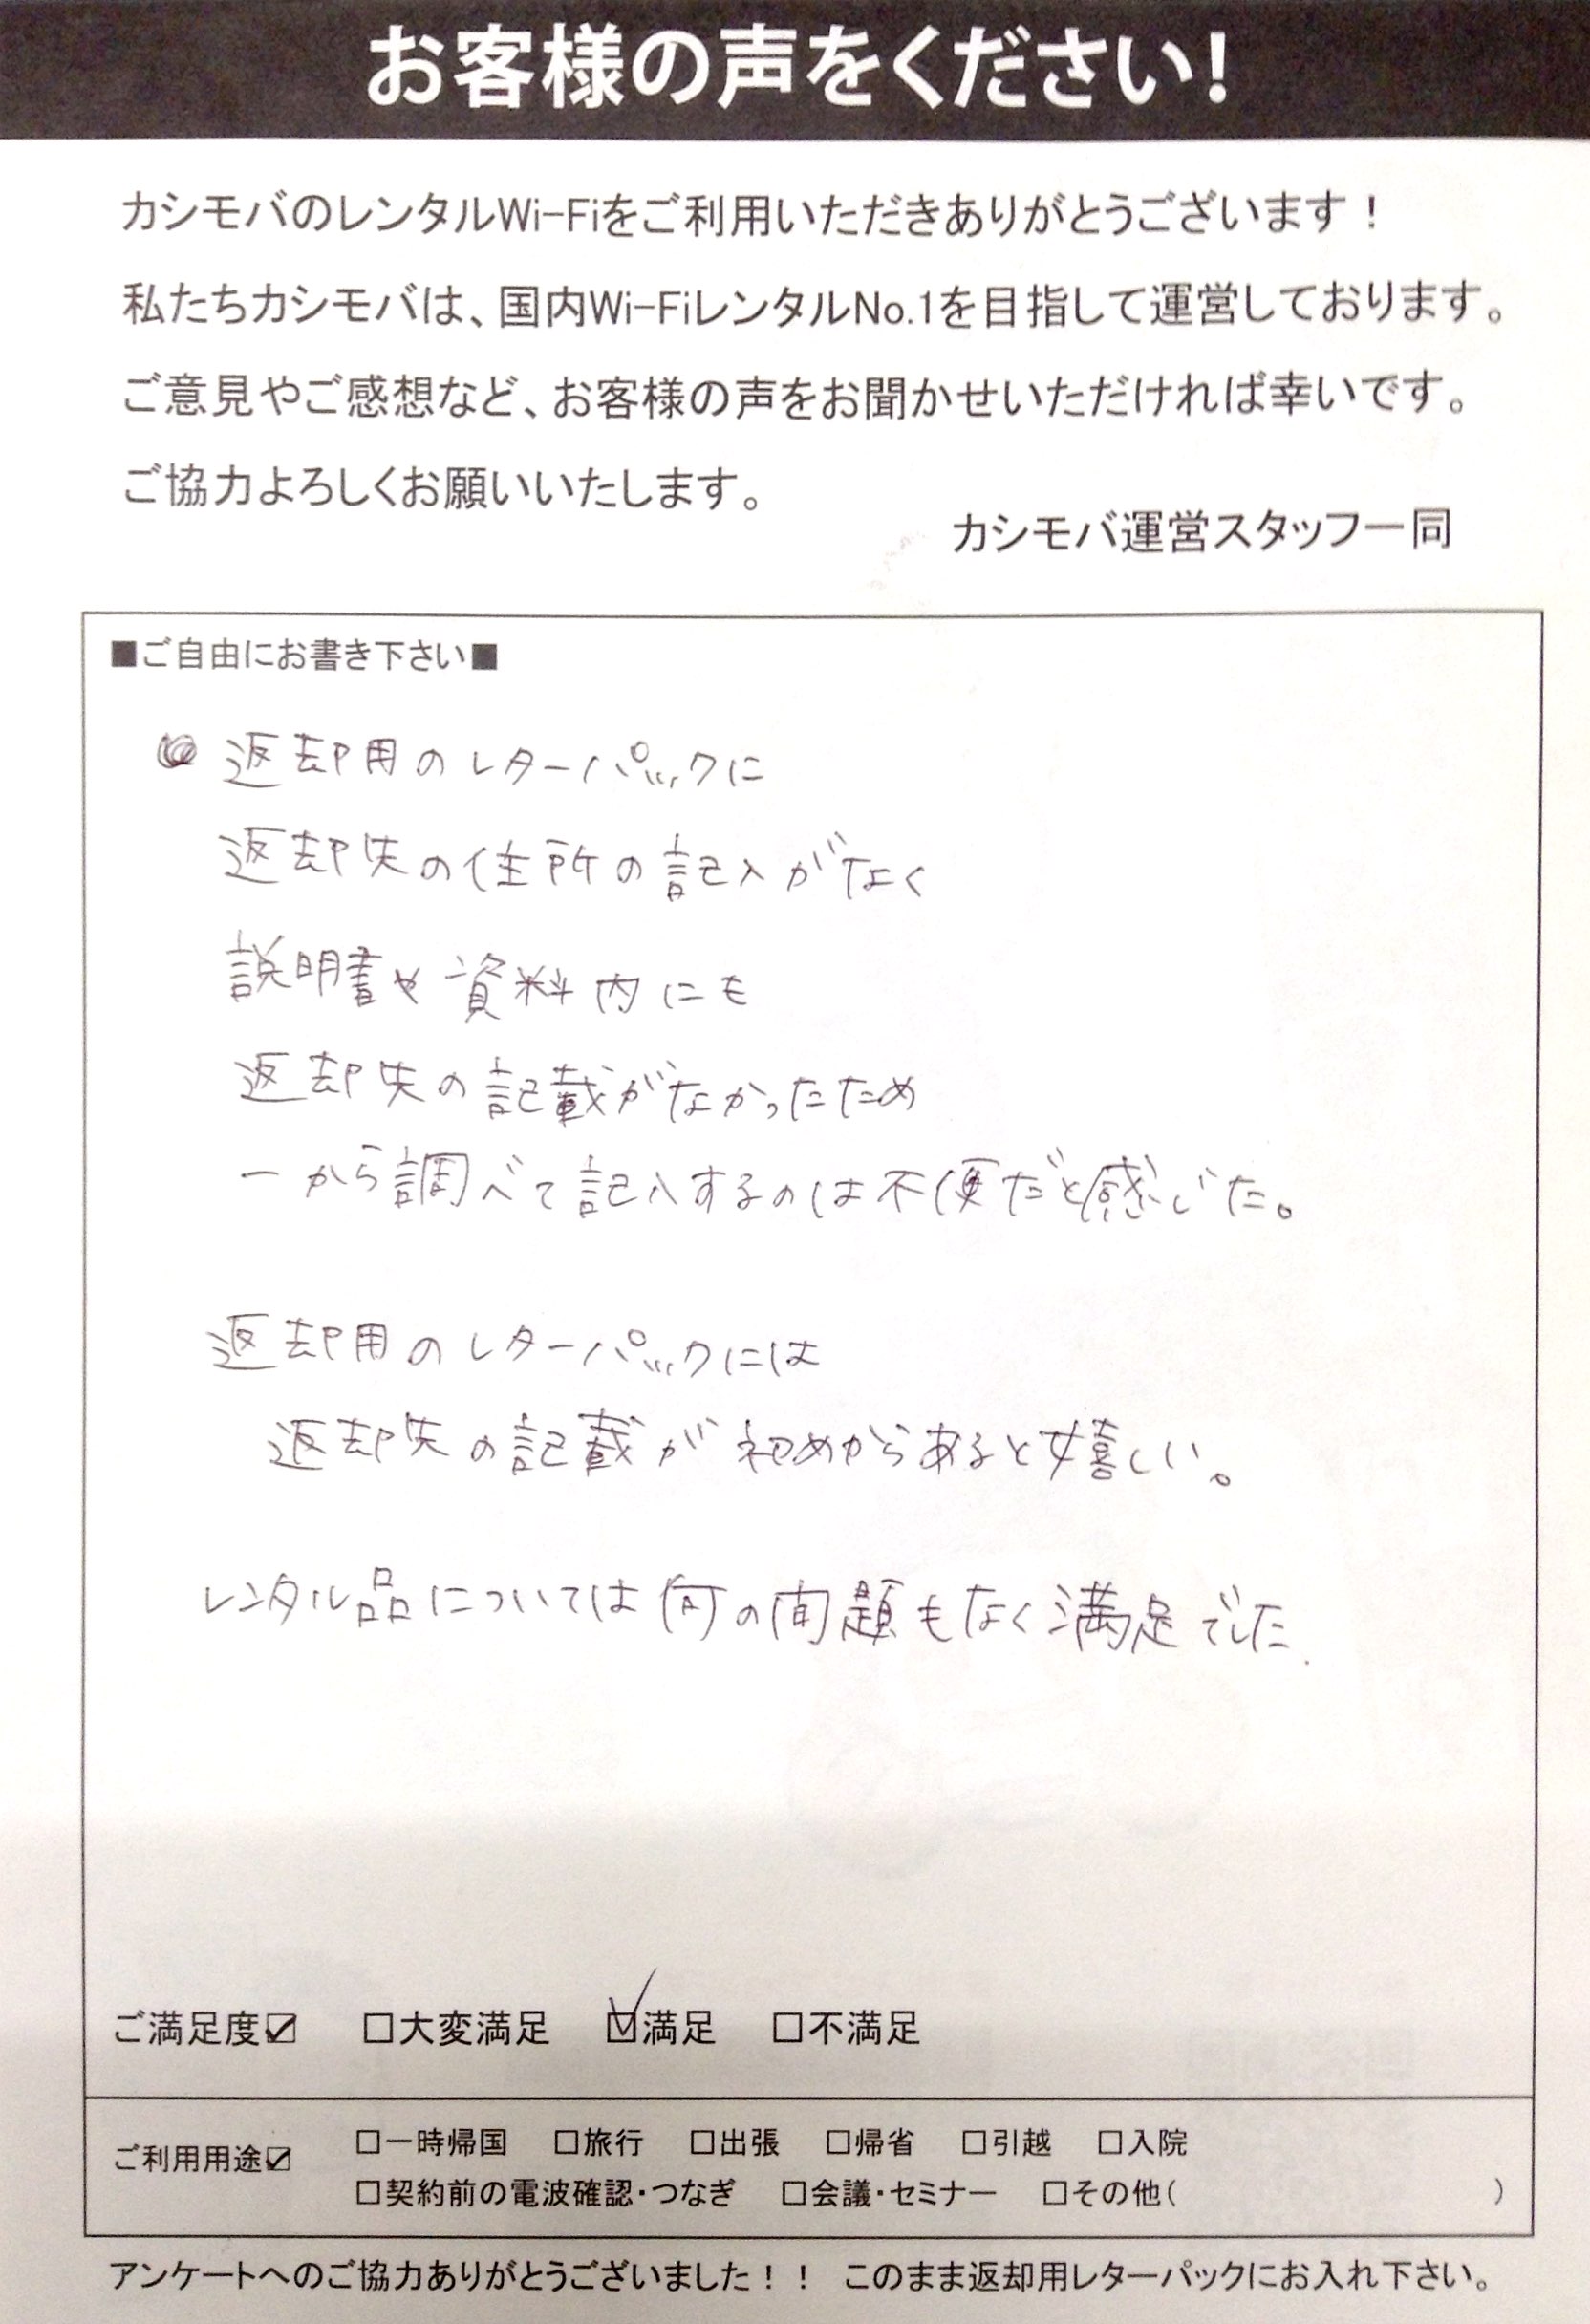 お客様の声をください!
カシモバのレンタルWi-Fiをご利用いただきありがとうございます！
私たちカシモバは、国内Wi-FiレンタルNo.1を目指して運営しております。
ご意見やご感想など、お客様の声をお聞かせいただければ幸いです。
ご協力よろしくお願いいたします。
カシモバ運営スタッフ一同
■ご自由にお書き下さい■
返却用のレターパックに
返却先の住所の記入がなく
説明書や資料内にも
返却先の記載がなかったため
一から調べて記入するのは不便だと感じた。
返却用のレターパックには
返却先の記載が初めからあると嬉しい。
レンタル品については何の問題もなく満足でした.
ご満足度☑ □大変満足 ☑満足 □不満足
ご利用用途☑ □一時帰国 □旅行 □出張 □帰省 □引越 □入院
□契約前の電波確認・つなぎ □会議・セミナー □その他( )
アンケートへのご協力ありがとうございました！！ このまま返却用レターパックにお入れ下さい。